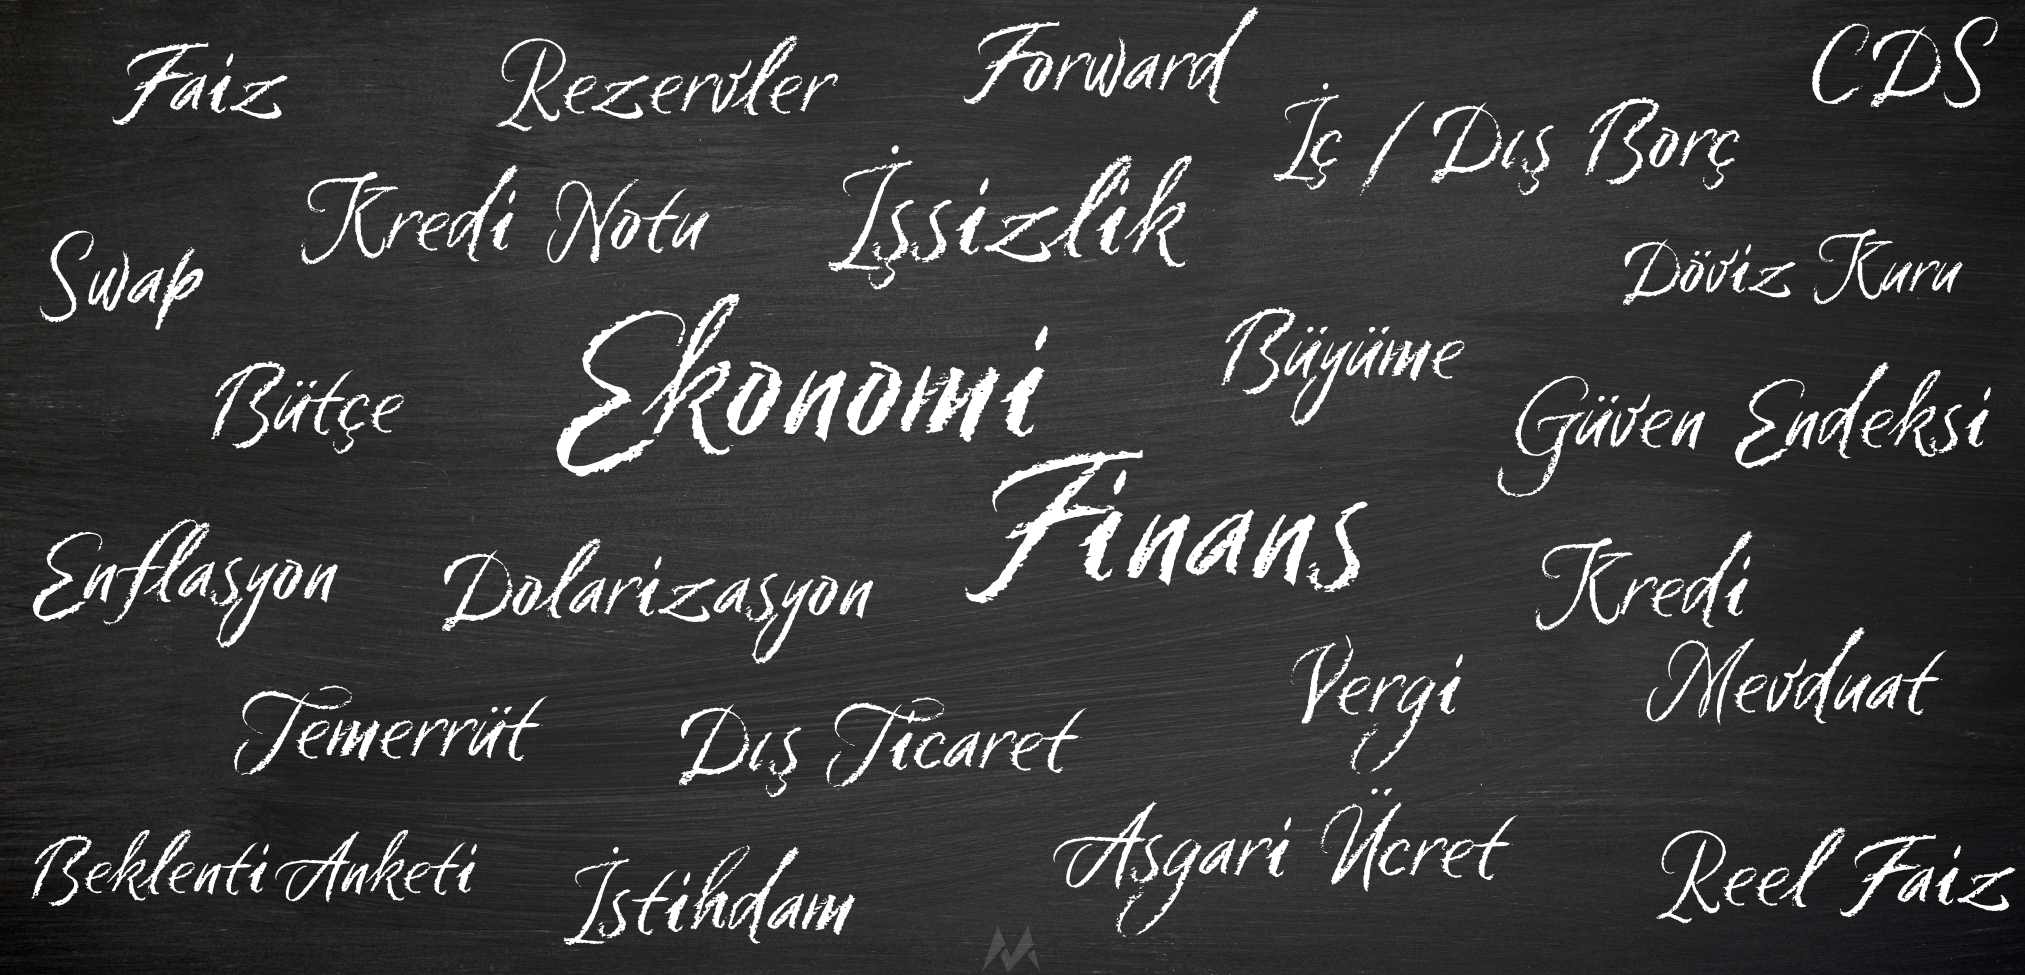 Faiz
Rezervler
Forward
CDS
İç / Dış Borç
Kredi Notu
İşsizlik
Swap
Döviz Kuru
Ekonomi
Büyüme
Bütçe
Güven Endeksi
Finans
Enflasyon
Dolarizasyon
Kredi
Vergi
Mevduat
Temerrüt
Dış Ticaret
Asgari Ücret
Beklenti Anketi
İstihdam
Reel Faiz